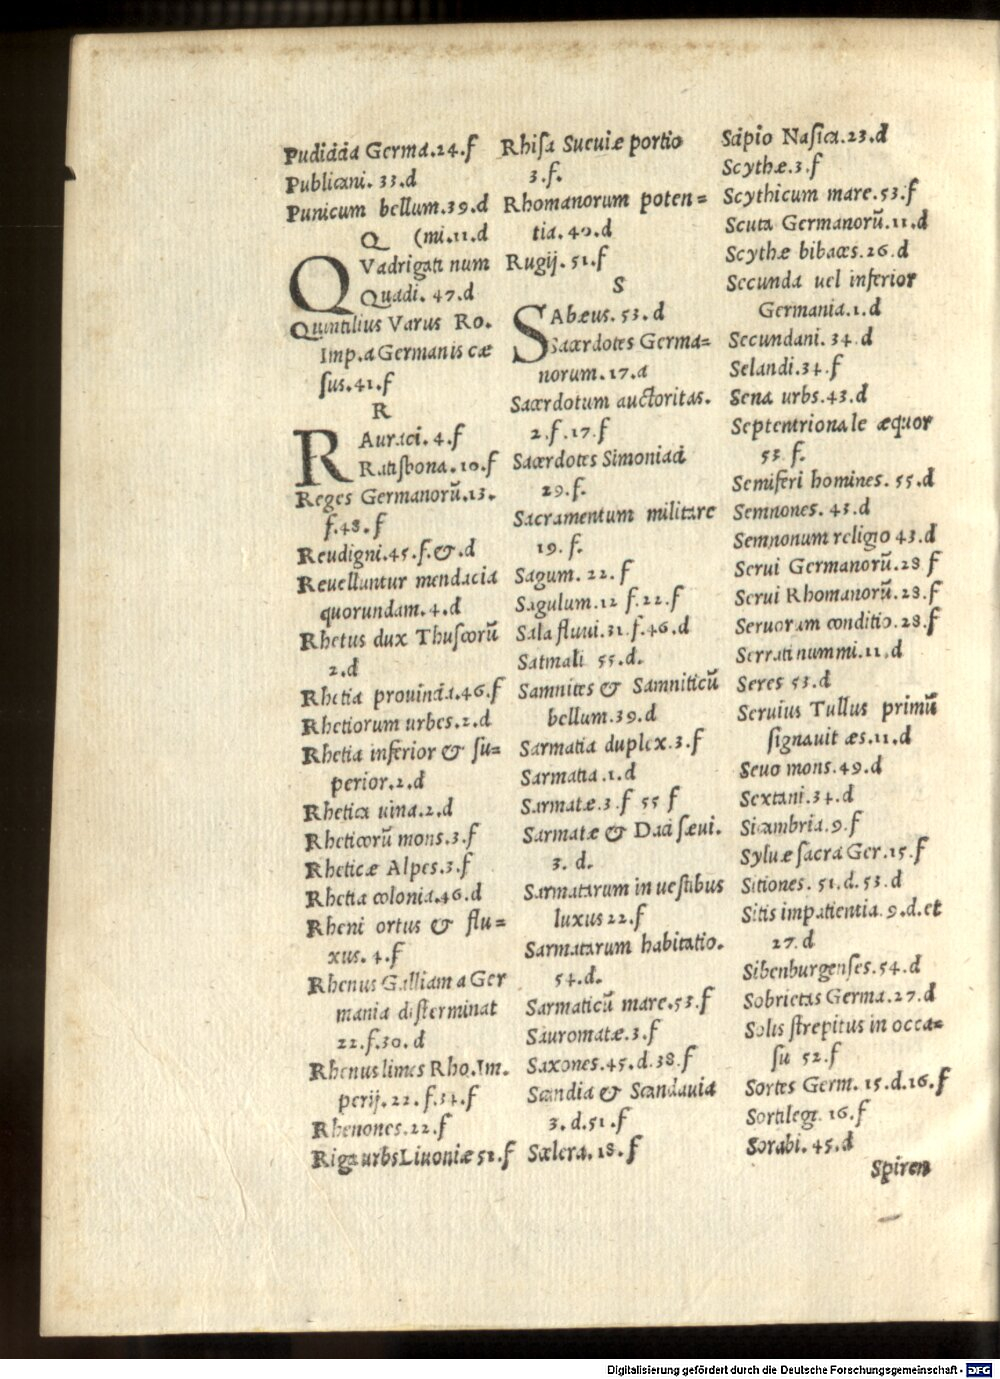 Pudicicia Germa.24.f
Publicani. 33.d
Punicum bellum.39.d
Q (mi.11.d
QVadrigati num
Quadi. 47.d
Quintilius Varus Ro.
Imp.a Germanis cæ
sus.41.f
R
RAuraci. 4.f
Ratisbona.10.f
Reges Germanorū.13.
f.48.f
Reudigni.45.f.&.d
Reuelluntur mendacia
quorundam.4.d
Rhetus dux Thuscorū
2.d
Rhetia prouincia.46.f
Rhetiorum urbes.2.d
Rhetia inferior & su=
perior.2.d
Rhetica uina.2.d
Rheticorū mons.3.f
Rheticæ Alpes.3.f
Rhetia colonia.46.d
Rheni ortus & flu=
xus. 4.f
Rhenus Galliam a Ger
mania disterminat
22.f.30.d
Rhenus limes Rho.Im.
perij.22.f.34.f
Rhenones.22.f
Riga urbs Liuoniæ 51.f
Rhisa Sueuiæ portio
3.f.
Rhomanorum poten=
tia.40.d
Rugij.51.f
S
SAbæus.53.d
Sacerdotes Germa=
norum.17.a
Sacerdotum auctoritas.
2.f.17.f
Sacerdotes Simoniaci
29.f.
Sacramentum militare
19.f.
Sagum.22.f
Sagulum.12 f.22.f
Sala fluui.31.f.46.d
Satmali 55.d.
Samnites & Samniticū
bellum.39.d
Sarmatia duplex.3.f
Sarmatia.1.d
Sarmatæ.3.f 55 f
Sarmatæ & Daci sæui.
3. d.
Sarmatarum in uestibus
luxus 22.f
Sarmatarum habitatio.
54.d.
Sarmaticū mare.53.f
Sauromatæ.3.f
Saxones.45.d.38.f
Scandia & Scandauia
3.d.51.f
Scelera.18.f
Scipio Nasica.23.d
Scythæ.3.f
Scythicum mare.53.f
Scuta Germanorū.11.d
Scythæ bibaces.26.d
Secunda uel inferior
Germania.1.d
Secundani. 34.d
Selandi.34.f
Sena urbs.43.d
Septentrionale æquor
53 f.
Semiferi homines. 55.d
Semnones. 43.d
Semnonum religio 43.d
Serui Germanorū.28 f
Serui Rhomanorū.28.f
Seruorum conditio.28.f
Serrati nummi.11.d
Seres 53.d
Seruius Tullus primū
signauit æs.11.d
Seuo mons.49.d
Sextani.34.d
Sicambria.9.f
Syluæ sacra Ger.15.f
Sitiones. 51.d.53.d
Sitis impatientia 9.d.et
27.d
Sibenburgenses.54.d
Sobrietas Germa.27.d
Solis strepitus in occa=
su 52.f
Sortes Germ. 15.d.16.f
Sortilegi. 16.f
Sorabi. 45.d
Spiren
Digitalisierung gefördert durch die Deutsche Forschungsgemeinschaft - DFG